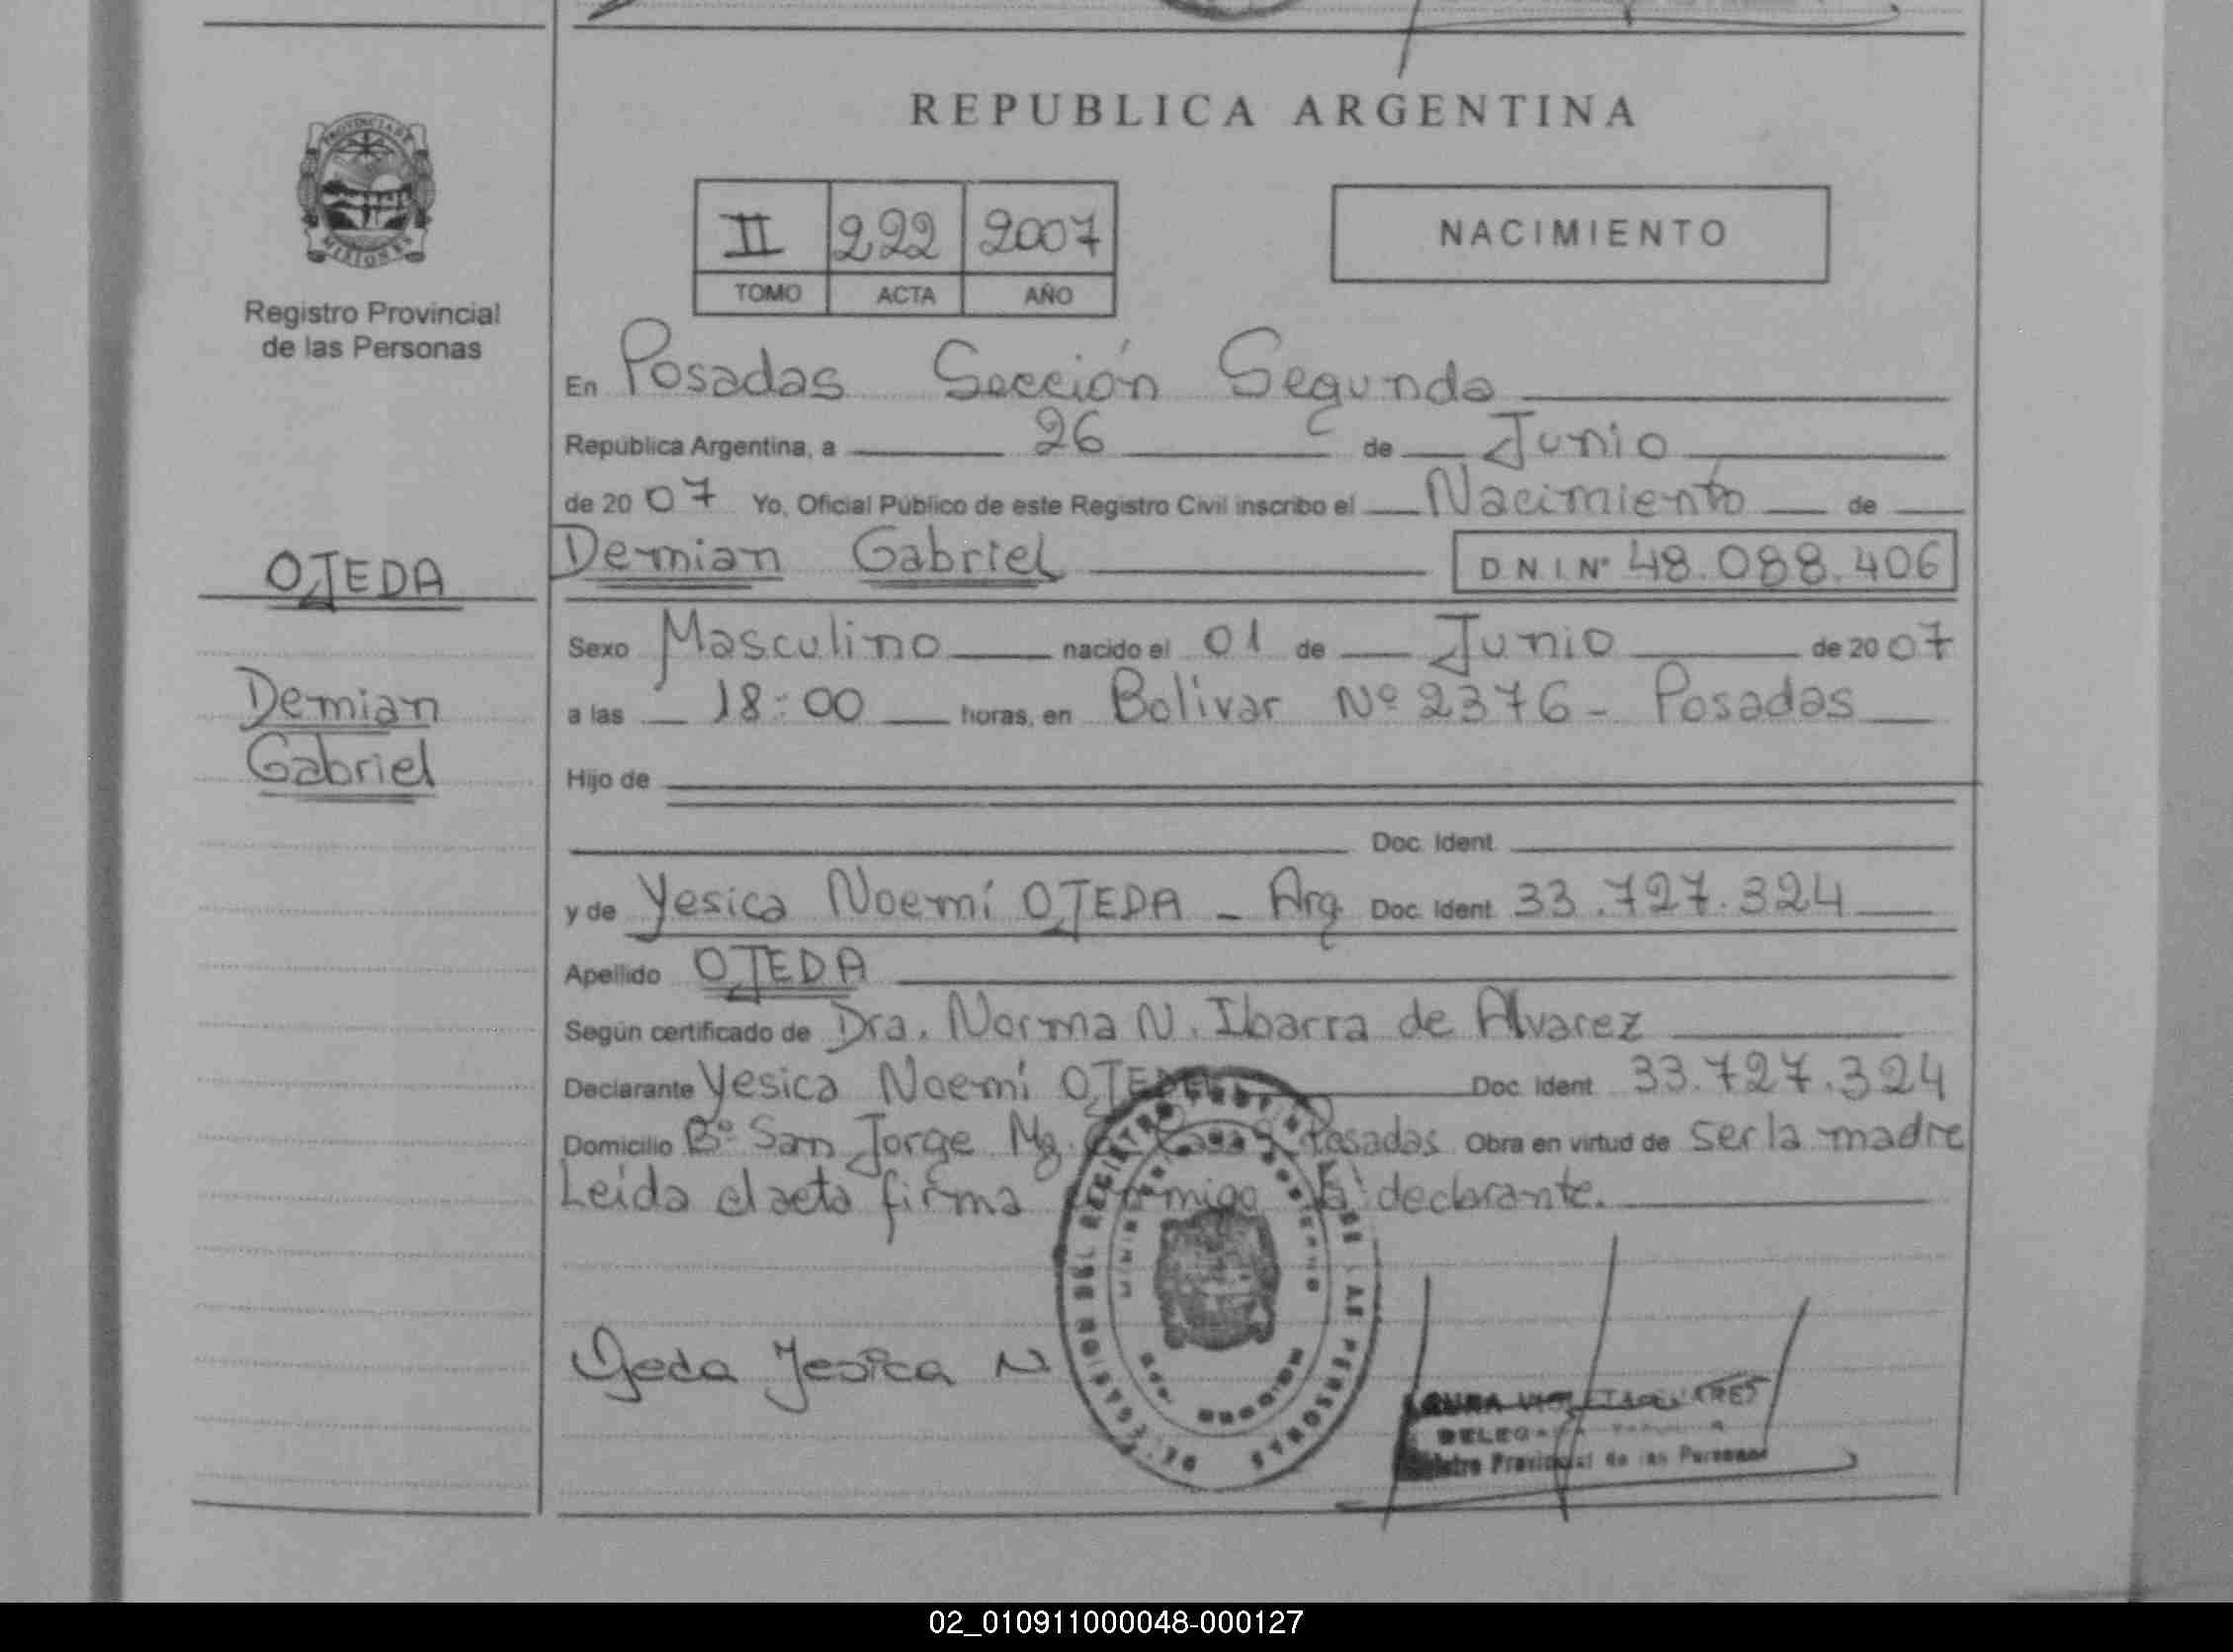 REPUBLICA ARGENTINA
II 222 2007
TOMO ACTA AÑO
NACIMIENTO
Registro Provincial
de las Personas
OJEDA
Demian
Gabriel
En Posadas Sección Segunda
República Argentina, a 26 de Junio
de 2007 Yo, Oficial Público de este Registro Civil inscribo el Nacimiento de
Demian Gabriel D N I. Nº 48.088.406
Sexo Masculino nacido el 01 de Junio de 2007
a las 18:00 horas, en Bolivar Nº 2376 - Posadas
Hijo de
Doc. Ident.
y de Yesica Noemí OJEDA - Arg Doc. Ident. 33.727.324
Apellido OJEDA
Según certificado de Dra. Norma N. Ibarra de Alvarez
Declarante Yesica Noemí OJEDA Doc. Ident. 33.727.324
Domicilio Bº San Jorge Mz. Casa Posadas Obra en virtud de ser la madre
Leída el acta firma conmigo la declarante.
Ojeda Yesica N
DE LAS PERSONAS
MISIONES
Provincial de las Personas
02_010911000048-000127